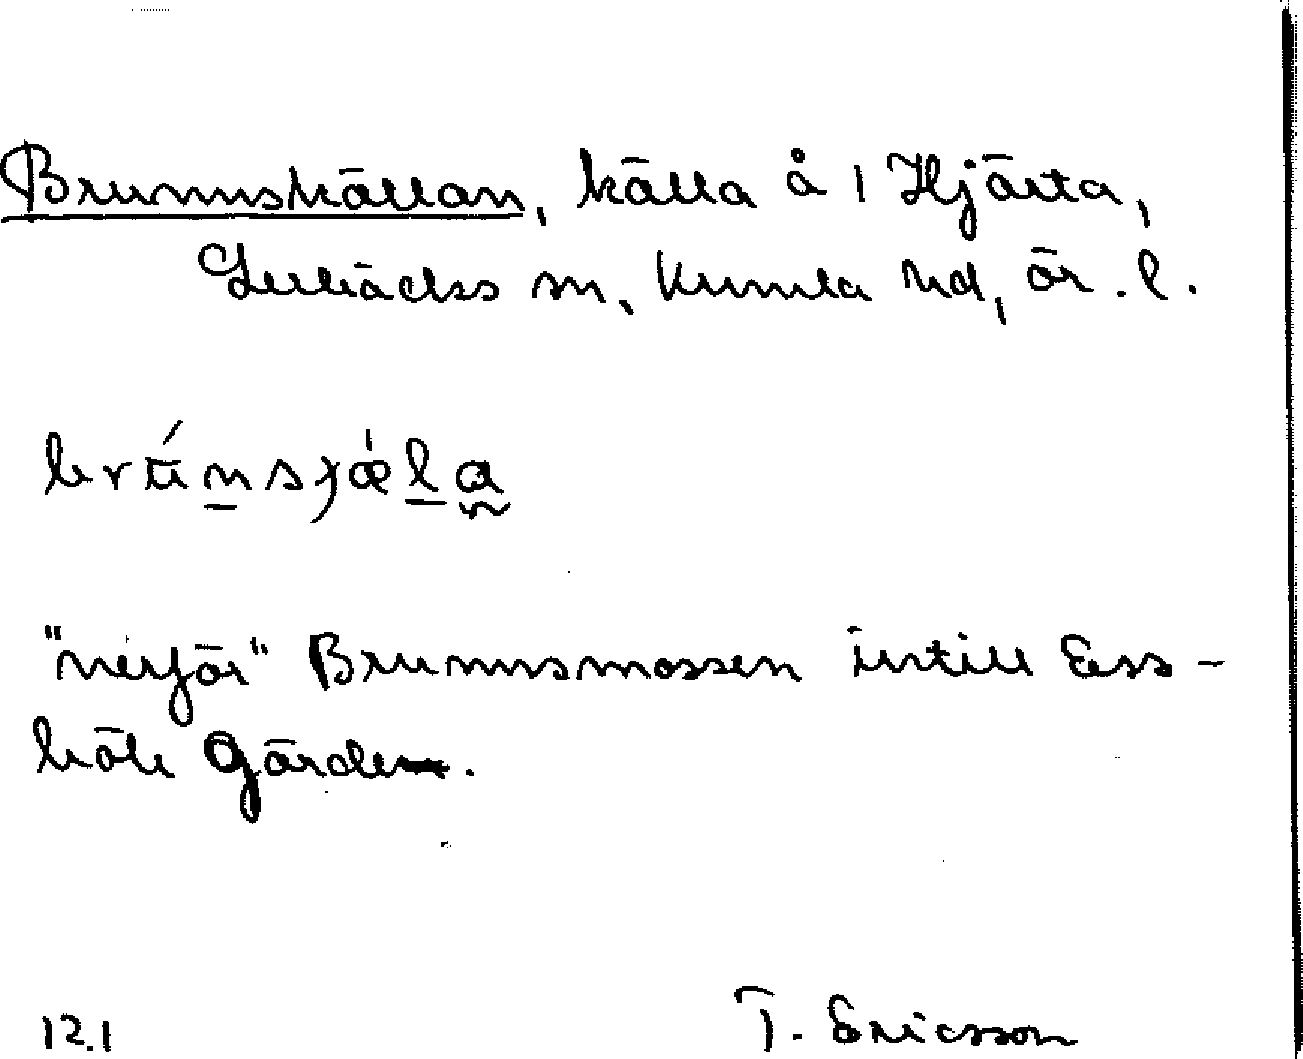 Brunnskällan, källa å 1 Hjärta,
Lerbäcks sn, Kumla hd, Ör. l.
brʉ́nsjǽla
"nerför" Brunnsmossen intill Ess-
höle Gärde.
12.1 T. Ericson